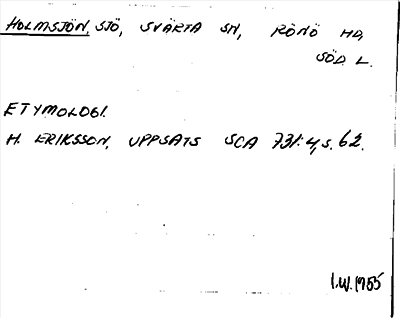 HOLMSJÖN, SJÖ, SVÄRTA SN, RÖNÖ HD,
SÖD. L.
ETYMOLOGI.
H. ERIKSSON, UPPSATS SCA 731:4, S. 62.
I.W. 1955